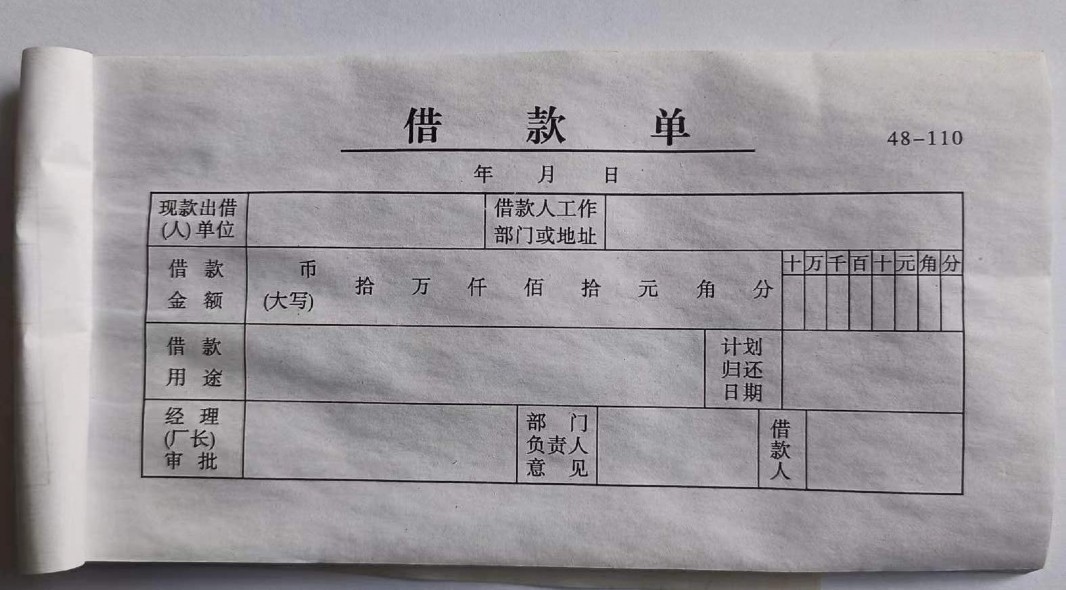 借 款 单
48-110
年 月 日
现款出借
(人)单位
借款人工作
部门或地址
借 款
金 额
币
(大写)
拾 万 仟 佰 拾 元 角 分
十 万 千 百 十 元 角 分
借 款
用 途
计划
归还
日期
经 理
(厂长)
审 批
部 门
负责人
意 见
借
款
人